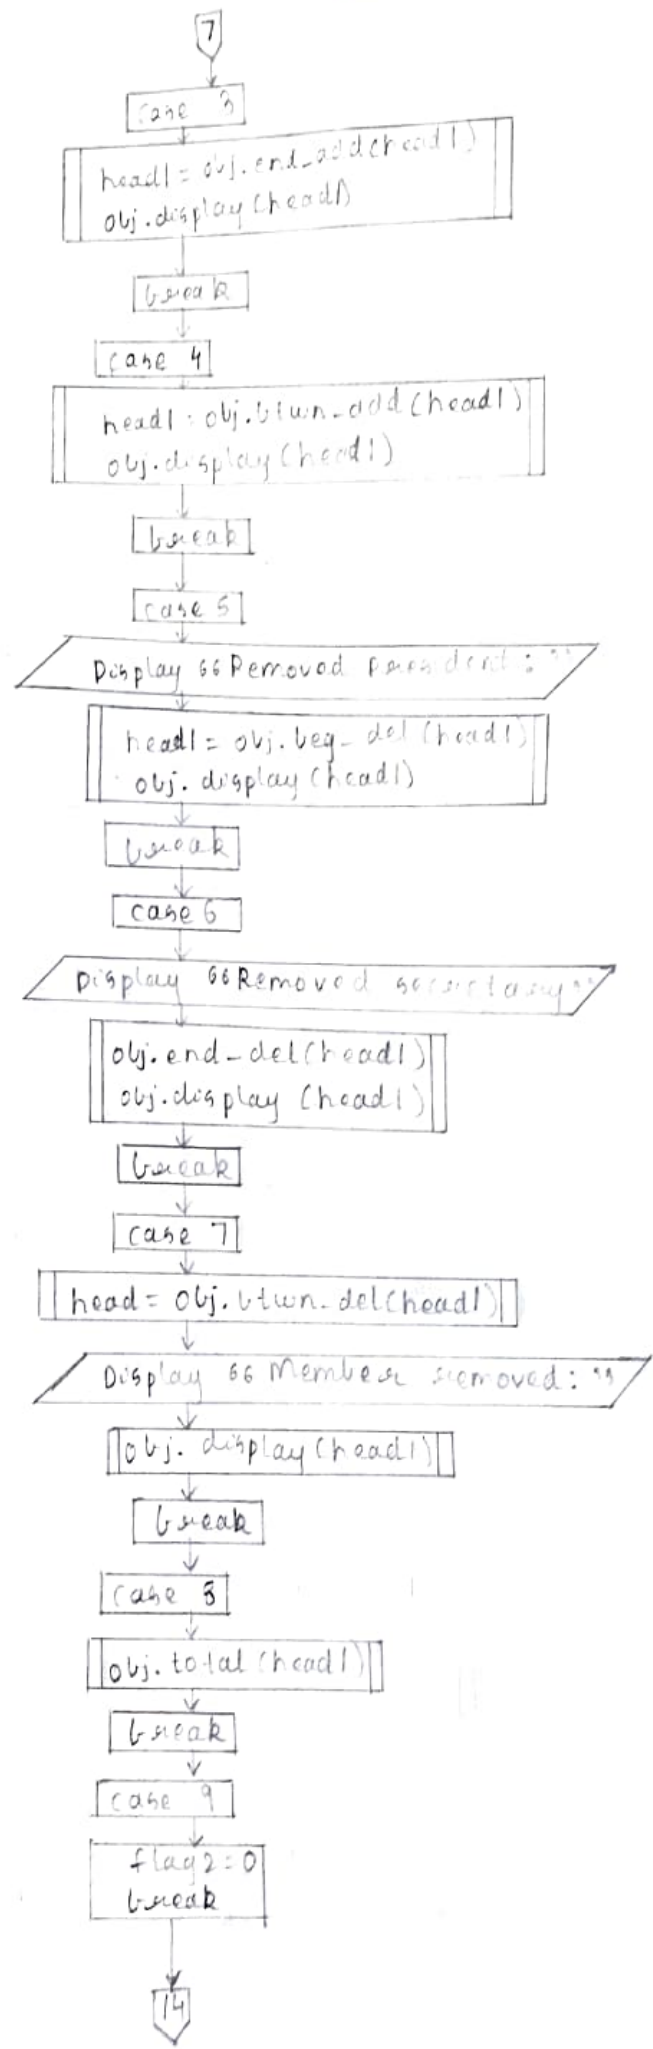 7
case 3
head1 = obj.end_add(head1)
obj.display(head1)
break
case 4
head1 = obj.btwn_add(head1)
obj.display(head1)
break
case 5
Display “Removed President : ”
head1 = obj.beg_del(head1)
obj. display(head1)
break
case 6
Display “Removed secretary”
obj.end_del(head1)
obj.display (head1)
break
case 7
head = obj.btwn_del(head1)
Display “Member removed: ”
obj. display(head1)
break
case 8
obj.total(head1)
break
case 9
flag2=0
break
14